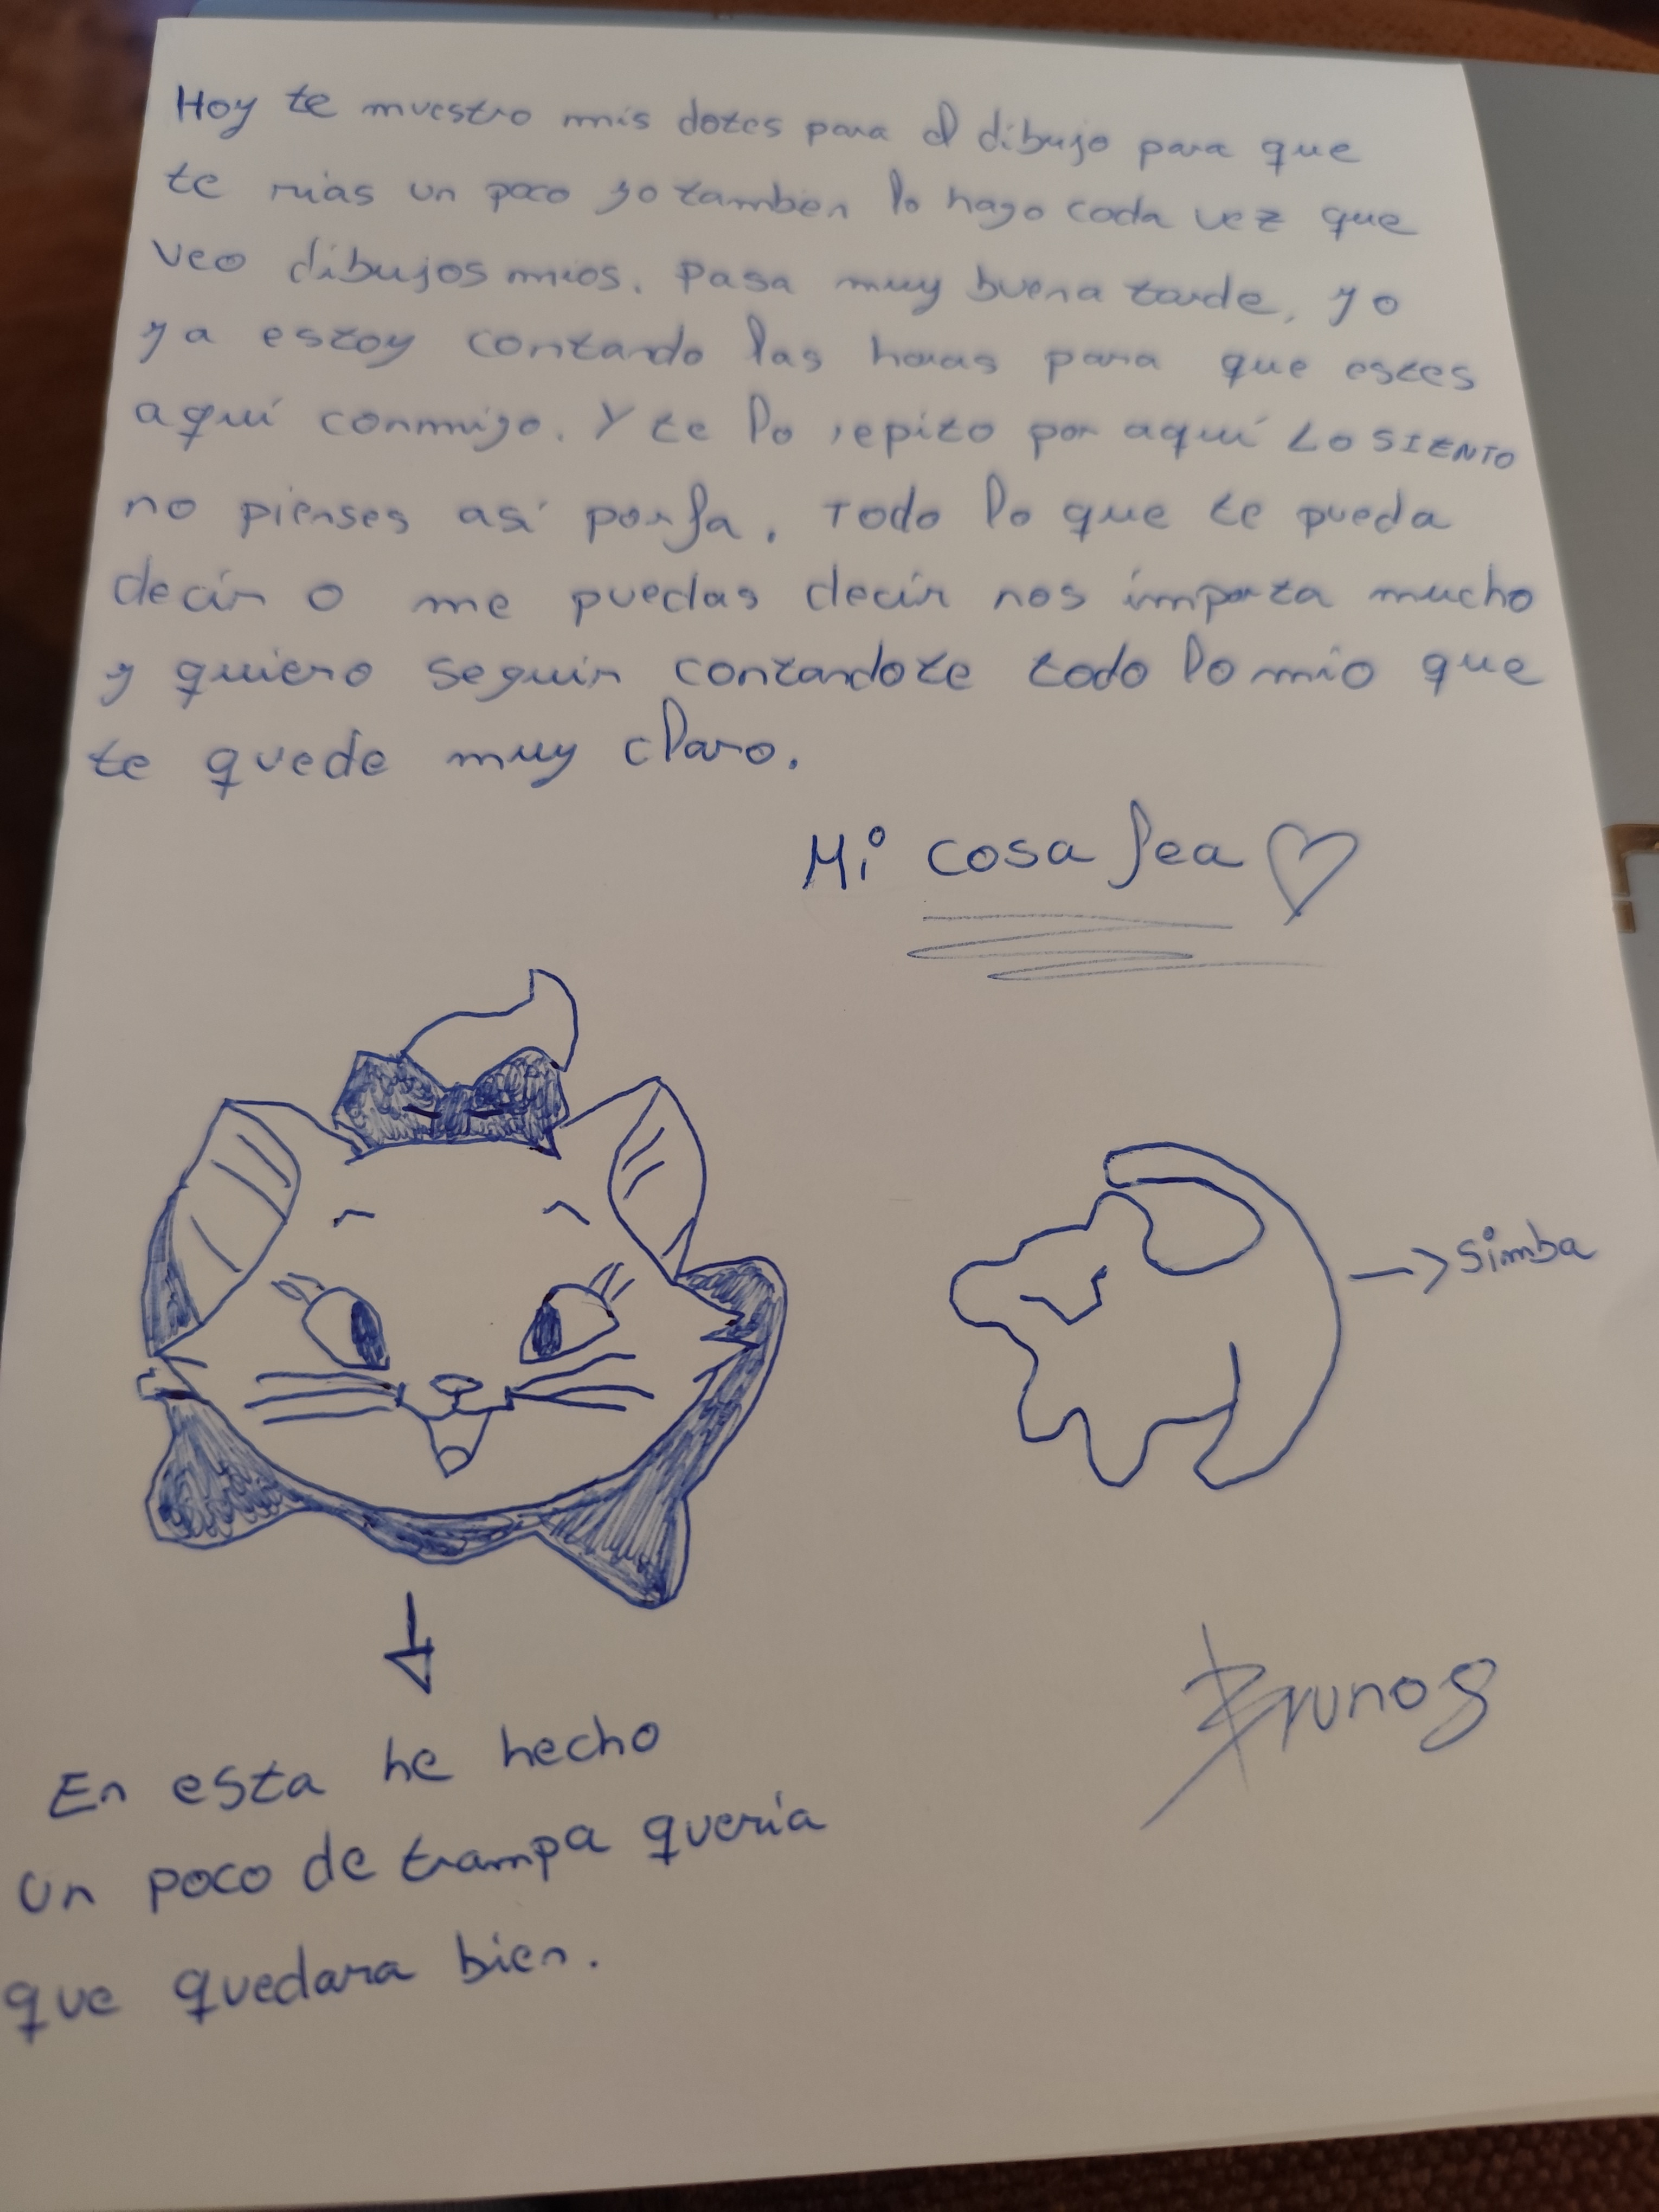 Hoy te muestro mis dotes para el dibujo para que
te rias un poco yo tambien lo hago cada vez que
veo dibujos mios. Pasa muy buena tarde, yo
ya estoy contando las horas para que estes
aquí conmigo. Y te lo repito por aquí LO SIENTO
no pienses así porfa. Todo lo que te pueda
decir o me puedas decir nos importa mucho
y quiero seguir contandote todo lo mio que
te quede muy claro.
Mi cosa fea
simba
En esta he hecho
un poco de trampa quería
que quedara bien.